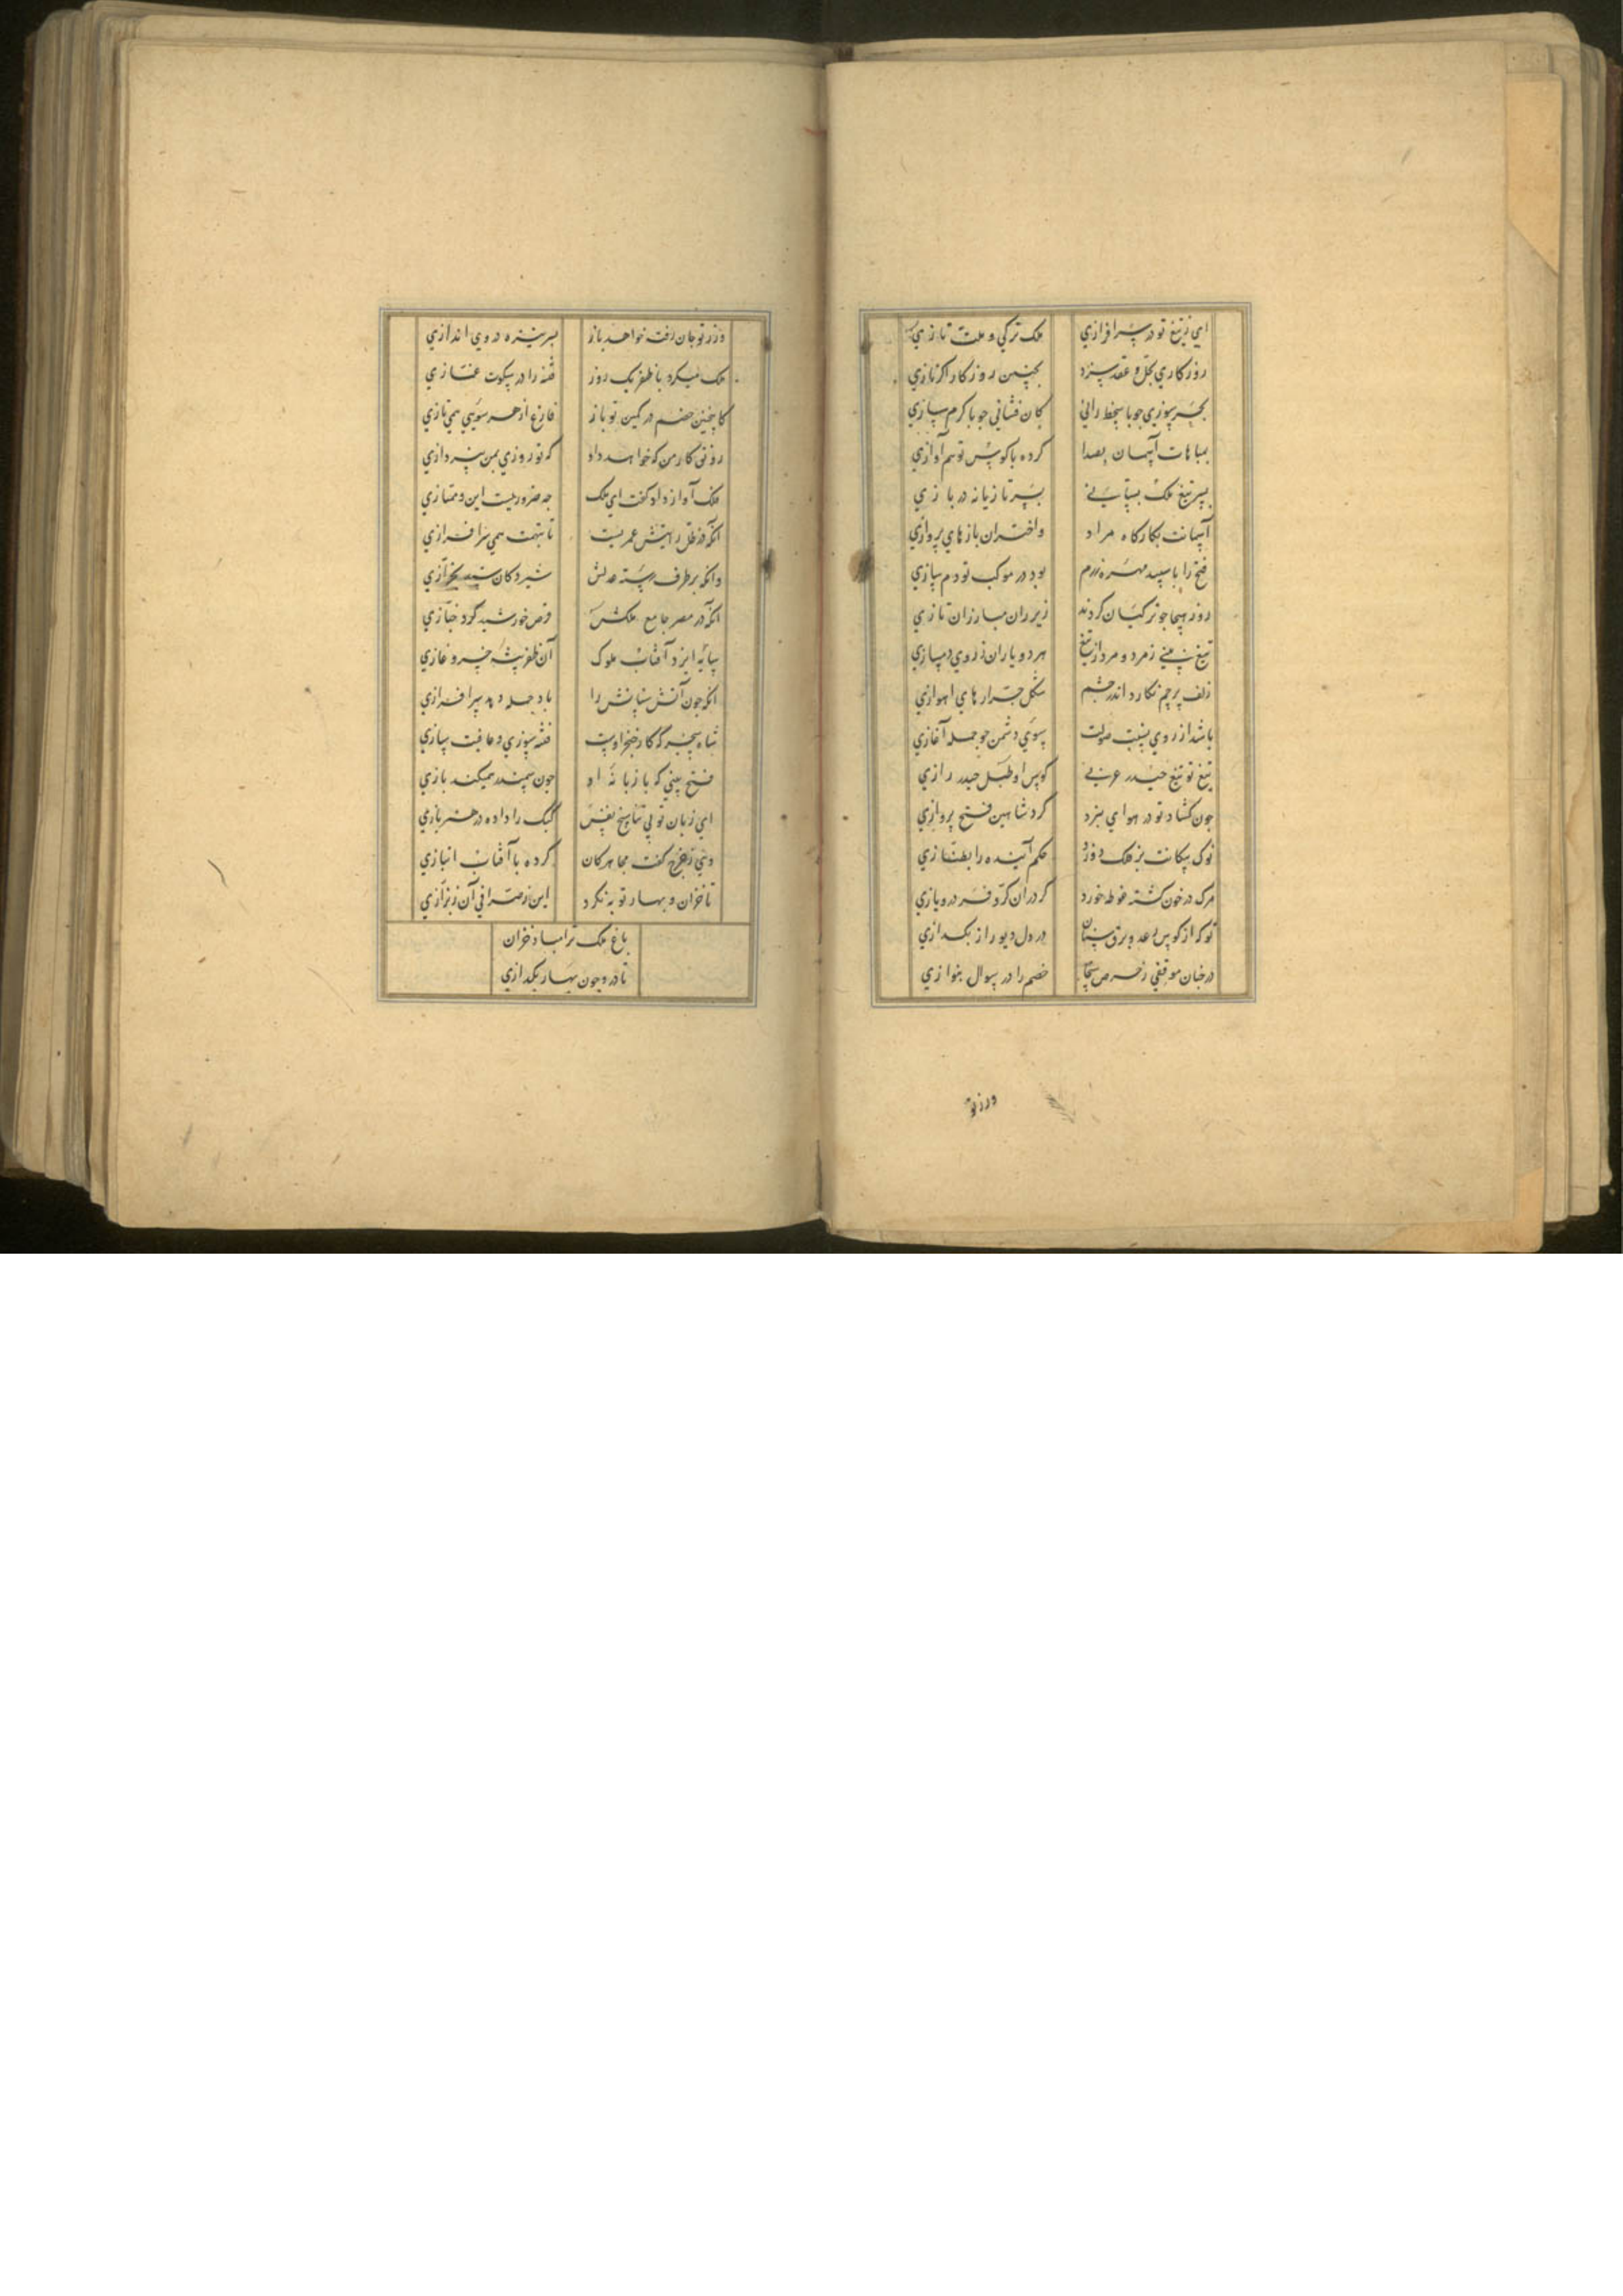 اي ز تيغ تو در سرافرازي ملک ترکي و ملت تازي
روزکاري بحل و عقد سزد بجنين روزکار اکر نازي
بحر سوزي جو با سخط راني کان فشاني جو با کرم سازي
بمباهات آسمان بصدا کرده با کوس تو هم آوازي
بسر تيغ ملک بستاني بسر تازيانه در بازي
آسمانت بکارکاه مراد واختران بازهاي پروازي
فتح را با سپيد مهره رزم بود در موکب تو دم سازي
روز هيجا جو ترکيان کردند زير ران مبارزان تازي
تيغ بيني ز مرد و مرد از تيغ هر دو ياران ز روي دمسازي
زلف پرچم نکارد اندر جشم شکل جرارهاي اهوازي
باشد از روي نسبت صولت سوي دشمن جو حمله آغازي
تيغ تو تيغ حيدر عربي کوس او طبل حيدر رازي
جون کشاد تو در هواي نبرد کرد شاهين فتح پروازي
نوک پيکانت بر فلک دوزد حکم آينده را بطنازي
مرک در خون کشته غوطه خورد کر در ان کر و فر درو يازي
تو که از کوس رعد و برق سنان در دل ديو راز بکدازي
در جنان موقفي ز حرص سخا خصم را در سوال بنوازي
ورز تو
ورز تو جان رفته خواهد باز بسر نيزه در وي اندازي
ملک ميکرد با ظفر يک روز فتنه را در سکوت غمازي
کاينجنين خصم در کمين تو باز فارغ از هر سويي همي تازي
رونق کار من که خواهد داد که تو روزي بمن نپردازي
فلک آواز داد کفت اي ملک جه ضروريست اين و ممتازي
آنکه در ظل رايتش عمريست تا بتهمت همي سرافرازي
وانکه بر طرف رسته عدلش شير دکان
آنکه در مصر جامع ملکش قرص خورشيد کرد خبازي
سايه ايزد آفتاب ملوک آن ظفر پيشه خسرو غازي
انکه جون آتش سنانش را باد حمله دهد سرافرازي
شاه سنجر که کار خنجر اوست فتنه سوزي و عافيت سازي
فتح بيني که با زبانه او جون سمندر هميکند بازي
اي زبان تو بي تناسخ نفس کبک را داده در هنر بازي
وي ز تفرج کفت مجاهرکان کرده با آفتاب انبازي
تا خزان و بهار توبه نکرد اين ز صرافي آن ز بزازي
باغ ملک ترا مباد خزان
تا درو جون بهار بکدازي